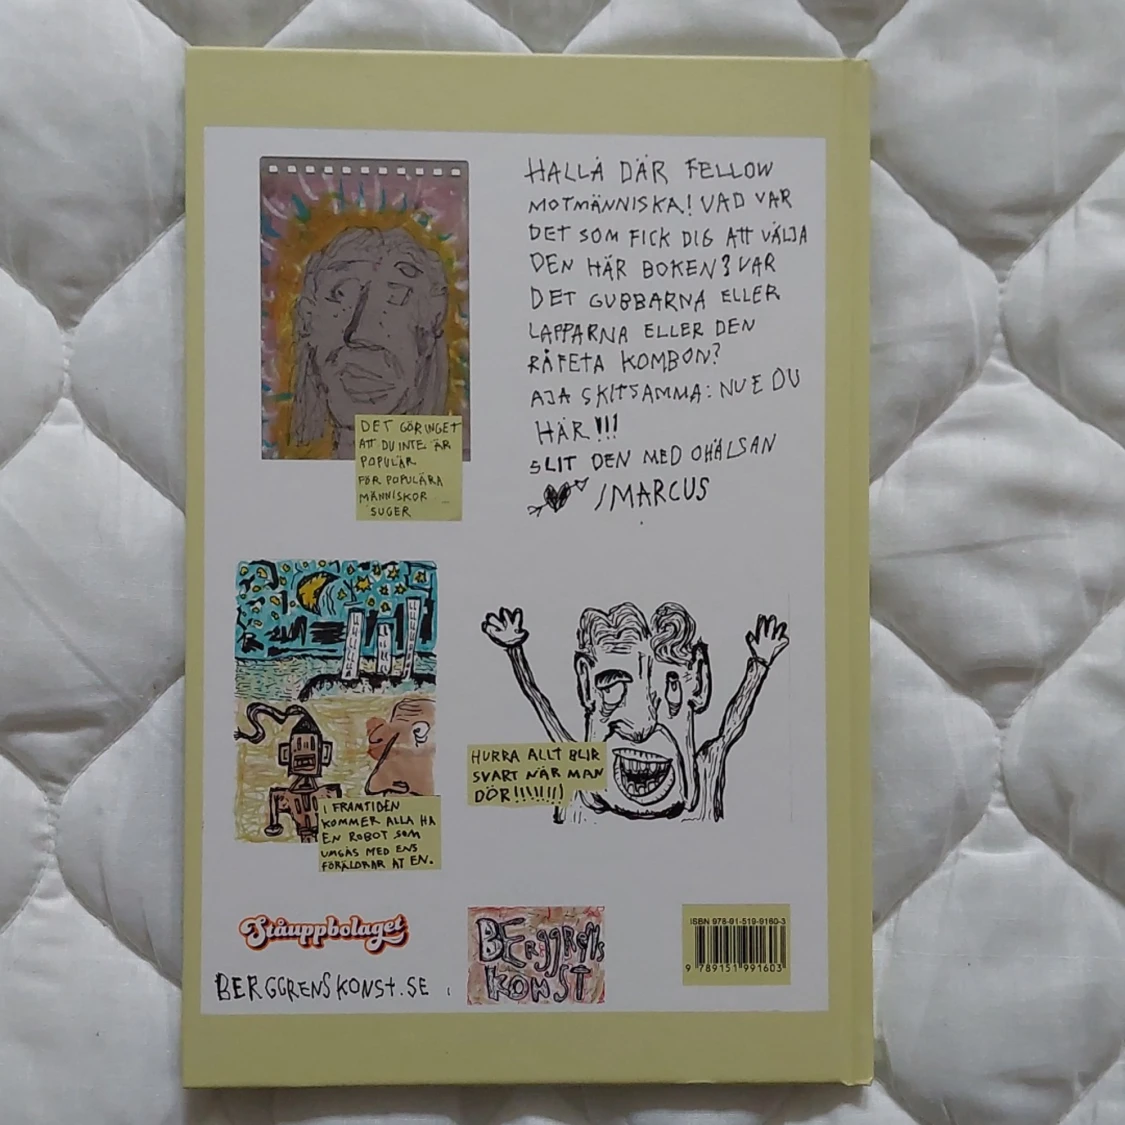 HALLÅ DÄR FELLOW
MOTMÄNNISKA! VAD VAR
DET SOM FICK DIG ATT VÄLJA
DEN HÄR BOKEN? VAR
DET GUBBARNA ELLER
LAPPARNA ELLER DEN
RÅFETA KOMBON?
AJA SKITSAMMA: NU E DU
HÄR!!!
SLIT DEN MED OHÄLSAN
/MARCUS
DET GÖR INGET
ATT DU INTE ÄR
POPULÄR
FÖR POPULÄRA
MÄNNISKOR
SUGER
I FRAMTIDEN
KOMMER ALLA HA
EN ROBOT SOM
UMGÅS MED ENS
FÖRÄLDRAR ÅT EN.
HURRA ALLT BLIR
SVART NÄR MAN
DÖR!!!!!!!)
Ståuppbolaget
BERGGRENSKONST.SE
BERGGRENS
KONST
ISBN 978-91-519-9160-3
9 789151 991603